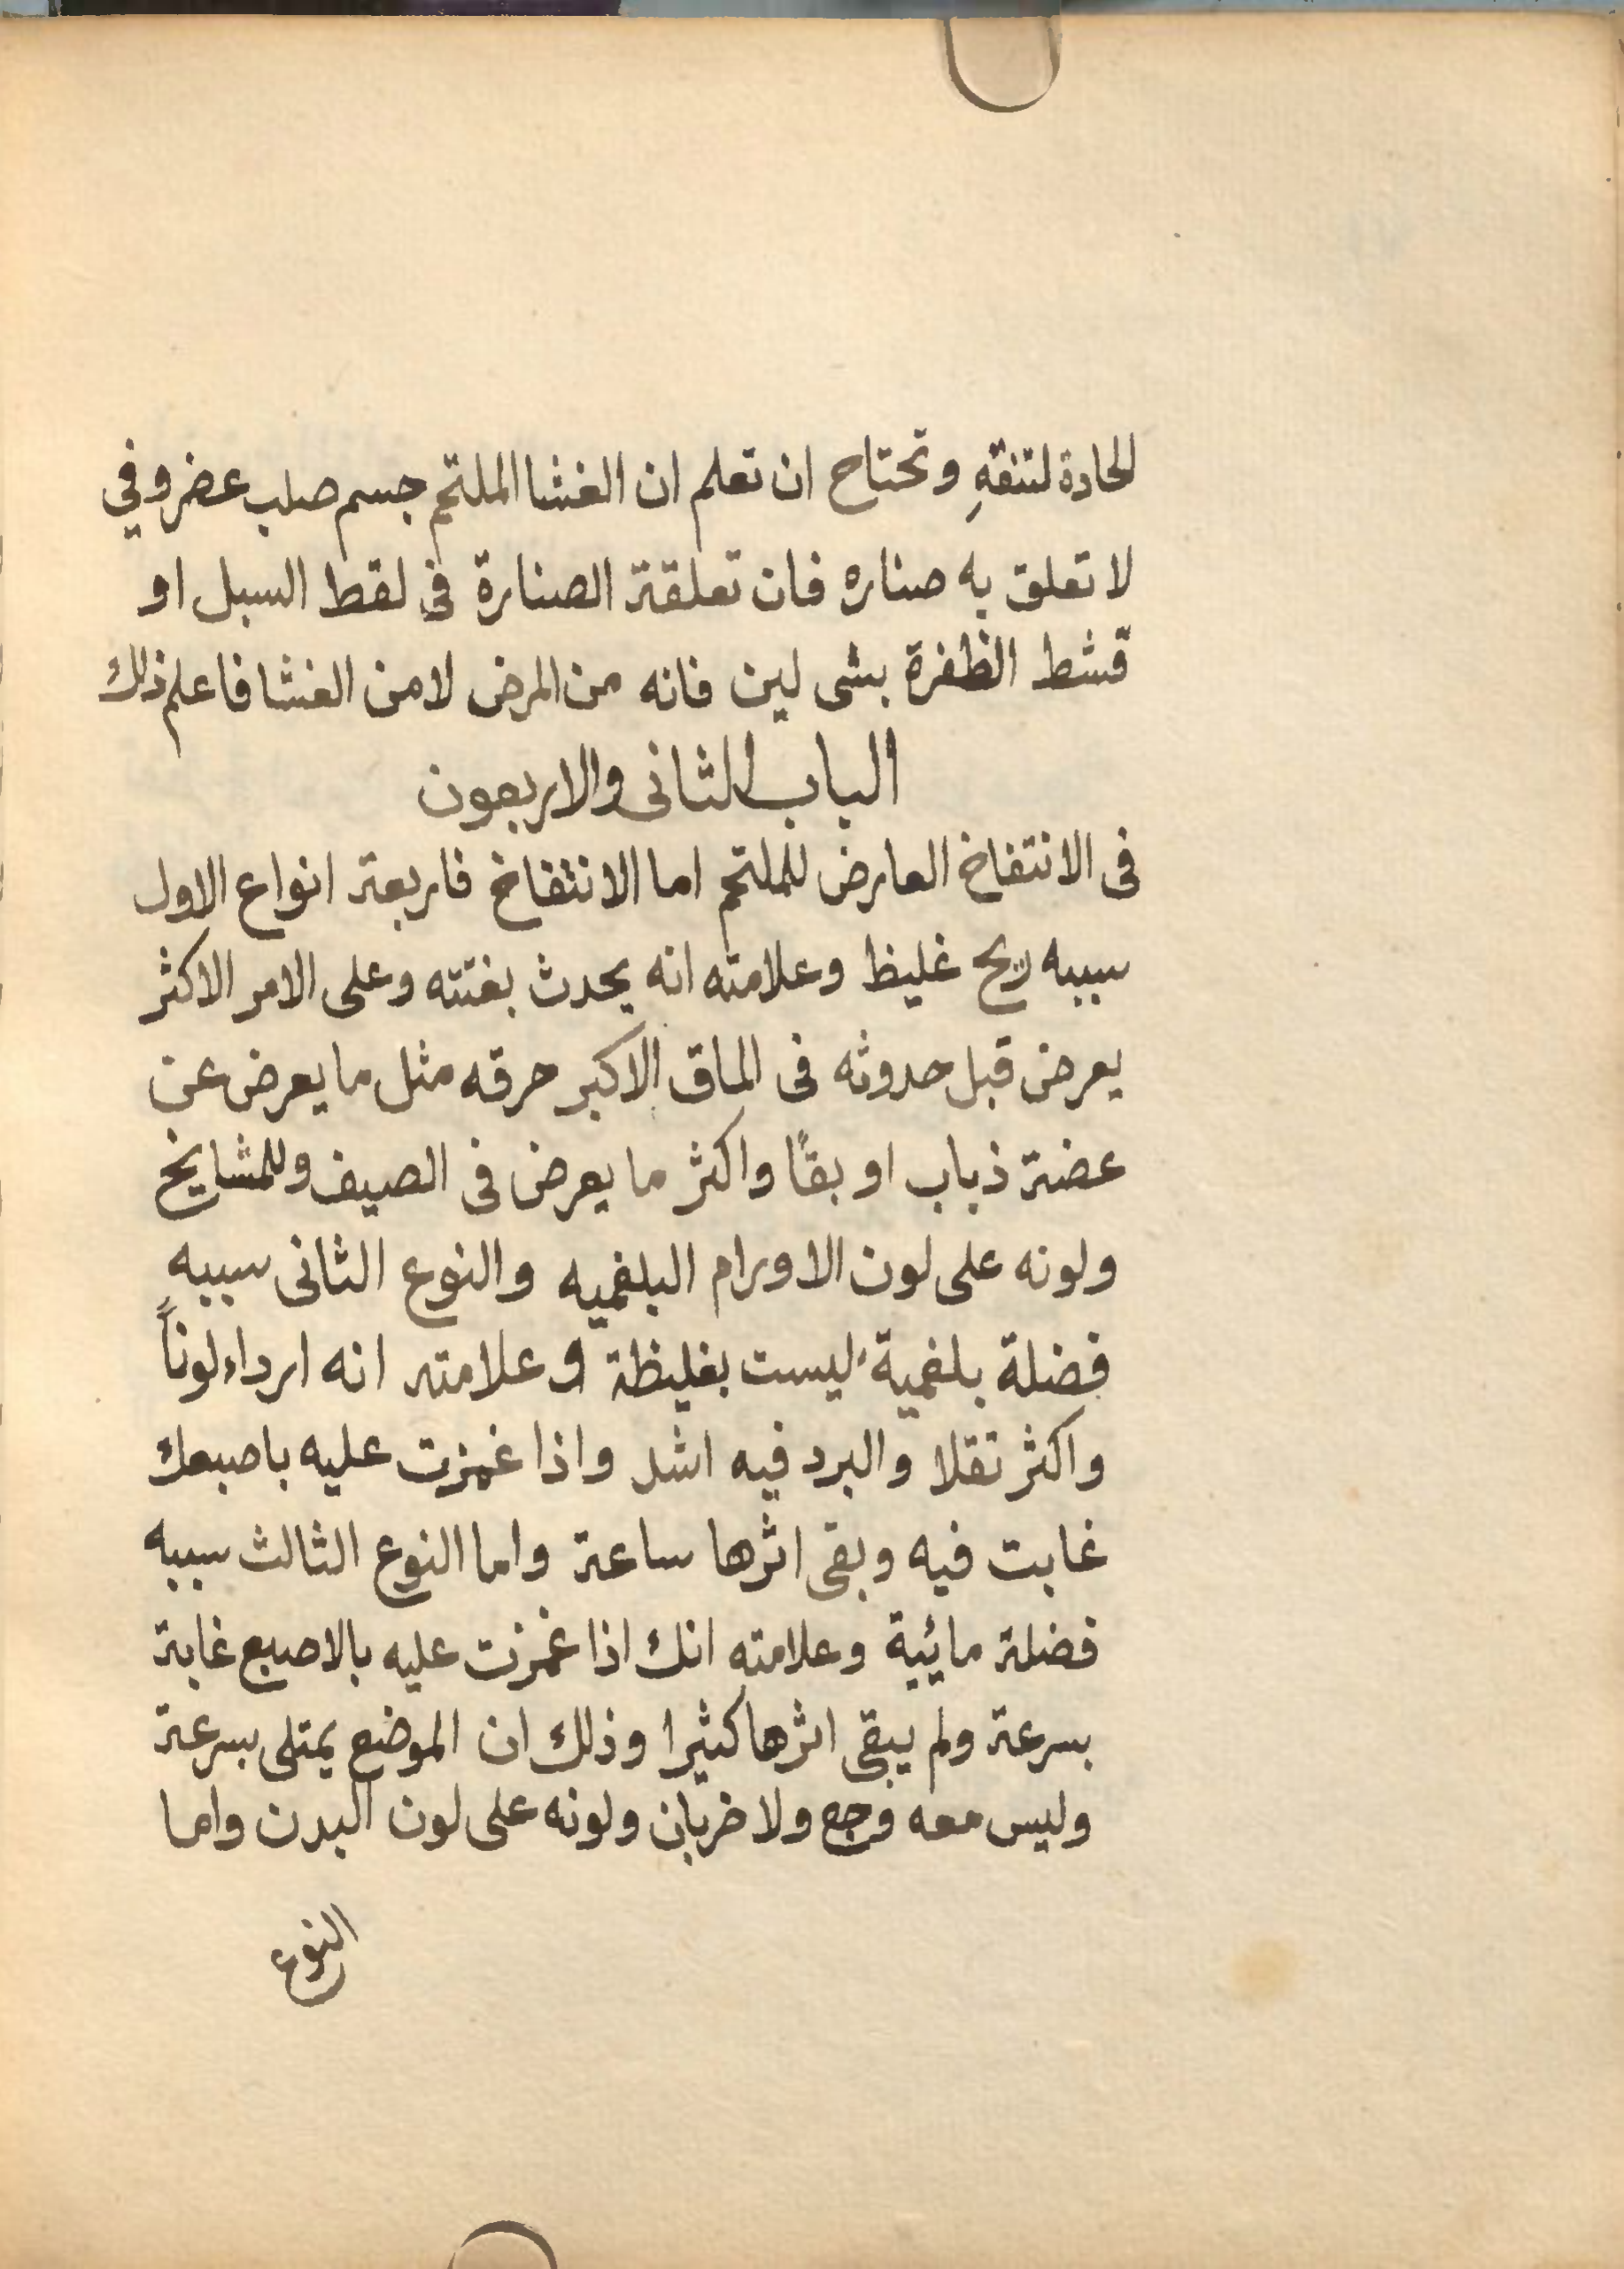 الحادة لتنقهِ وتحتاج ان تعلم ان الغشا الملتحم جسم صلب عضروفي
لا تعلق به صناره فان تعلقة الصنارة فى لقط السبل او
قشط الظفرة بشى لين فانه من المرض لا من الغشا فاعلم ذلك
الباب الثانى والاربعون
فى الانتفاخ العارض للملتحم اما الانتفاخ فاربعة انواع الاول
سببه ريح غليظ وعلامته انه يحدث بغتته وعلى الامر الاكثر
يعرض قبل حدوثه فى الماق الاكبر حرقه مثل ما يعرض عن
عضة ذباب او بقًا واكثر ما يعرض فى الصيف وللمشايخ
ولونه على لون الاورام البلغميه والنوع الثانى سببه
فضلة بلغمية ليست بغليظة وعلامته انه ارداء لوناً
واكثر ثقلا والبرد فيه اشد واذا غمزت عليه باصبعك
غابت فيه وبقى اثرها ساعة واما النوع الثالث سببه
فضلة مائية وعلامته انك اذا غمزت عليه بالاصبع غابة
بسرعة ولم يبقى اثرها كثيرا وذلك ان الموضع يمتلى بسرعة
وليس معه وجع ولا ضربان ولونه على لون البدن واما
النوع